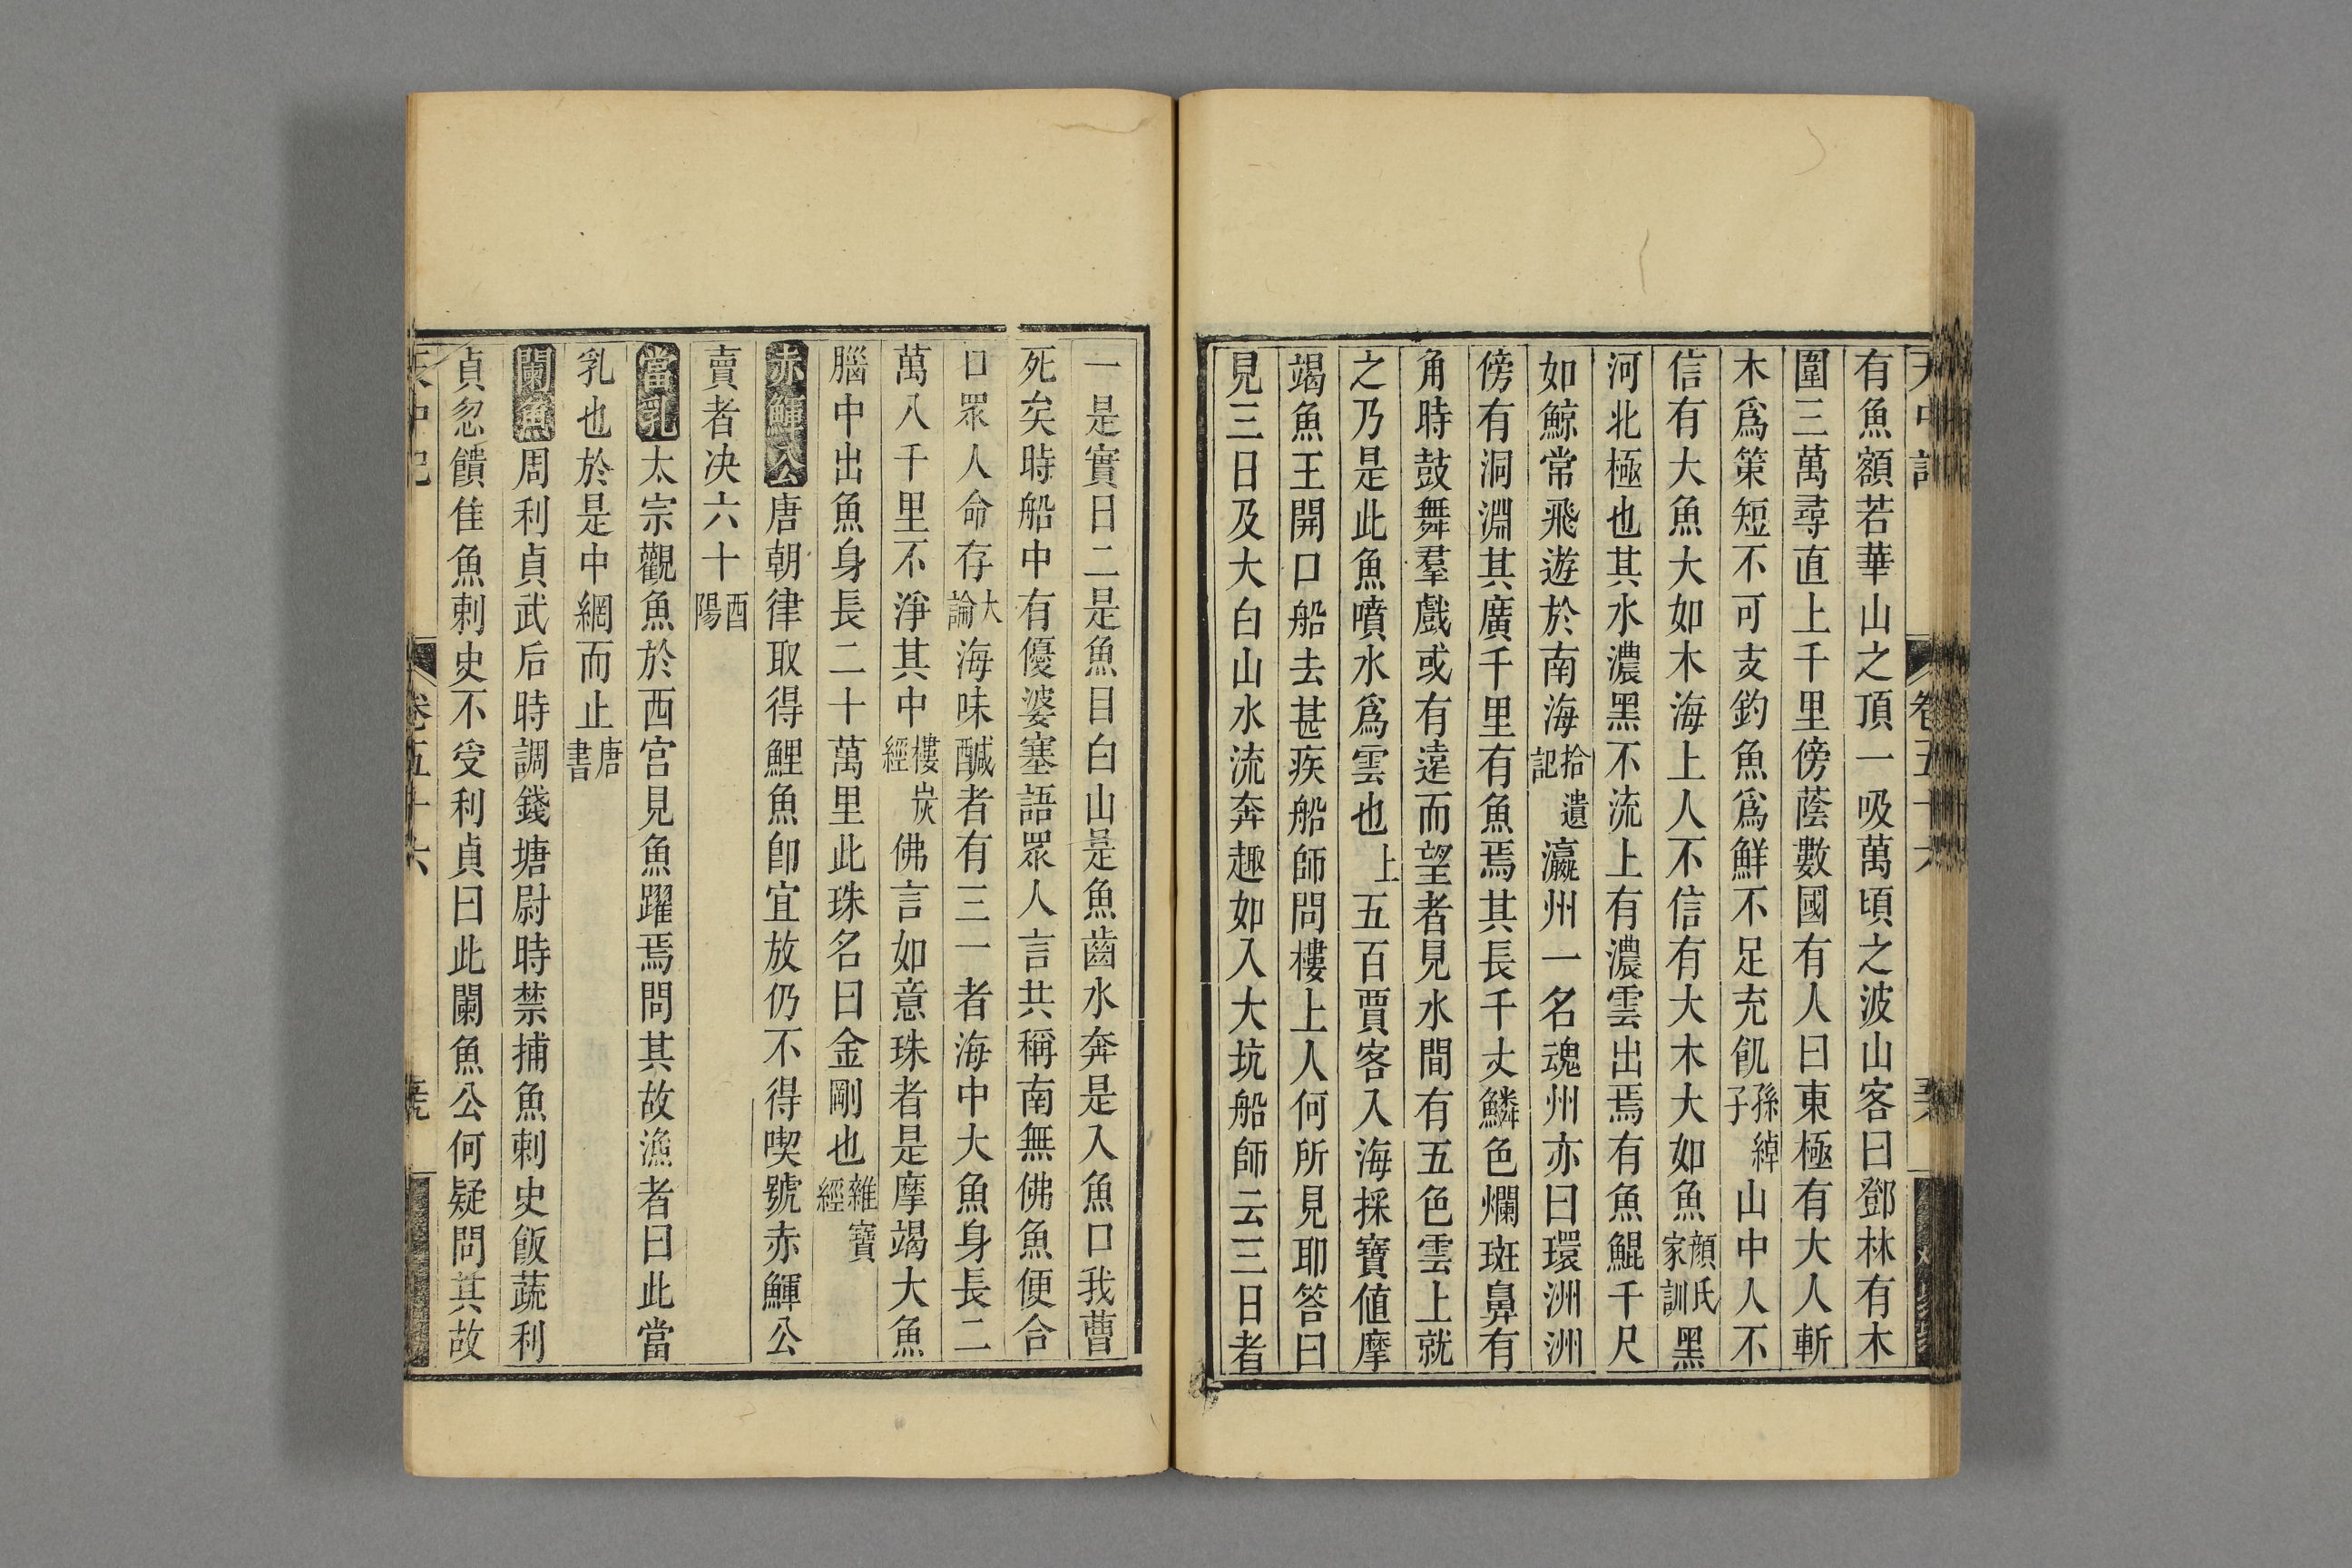 有魚額若華山之頂一吸萬頃之波山客曰鄧林有木
圍三萬尋直上千里傍蔭數國有人曰東極有大人斬
木爲策短不可支釣魚爲鮮不足充飢孫綽子山中人不
信有大魚大如木海上人不信有大木大如魚顔氏家訓黑
河北極也其水濃黑不流上有濃雲出焉有魚鯤千尺
如鯨常飛遊於南海拾遺記瀛州一名魂州亦曰環洲洲
傍有洞淵其廣千里有魚焉其長千丈鱗色爛斑鼻有
角時鼓舞羣戲或有遠而望者見水間有五色雲上就
之乃是此魚噴水爲雲也上五百賈客入海採寶値摩
竭魚王開口船去甚疾船師問樓上人何所見耶答曰
見三日及大白山水流奔趣如入大坑船師云三日者
一是實日二是魚目白山是魚齒水奔是入魚口我曹
死矣時船中有優婆塞語眾人言共稱南無佛魚便合
口眾人命存大論海味醎者有三一者海中大魚身長二
萬八千里不淨其中樓炭經佛言如意珠者是摩竭大魚
腦中出魚身長二十萬里此珠名曰金剛也雜寶經
赤鯶公唐朝律取得鯉魚卽宜放仍不得喫號赤鯶公
賣者決六十酉陽
當乳太宗觀魚於西宮見魚躍焉問其故漁者曰此當
乳也於是中網而止唐書
闌魚周利貞武后時調錢塘尉時禁捕魚刺史飯蔬利
貞忽饋佳魚刺史不受利貞曰此闌魚公何疑問其故
天中記 卷五十六